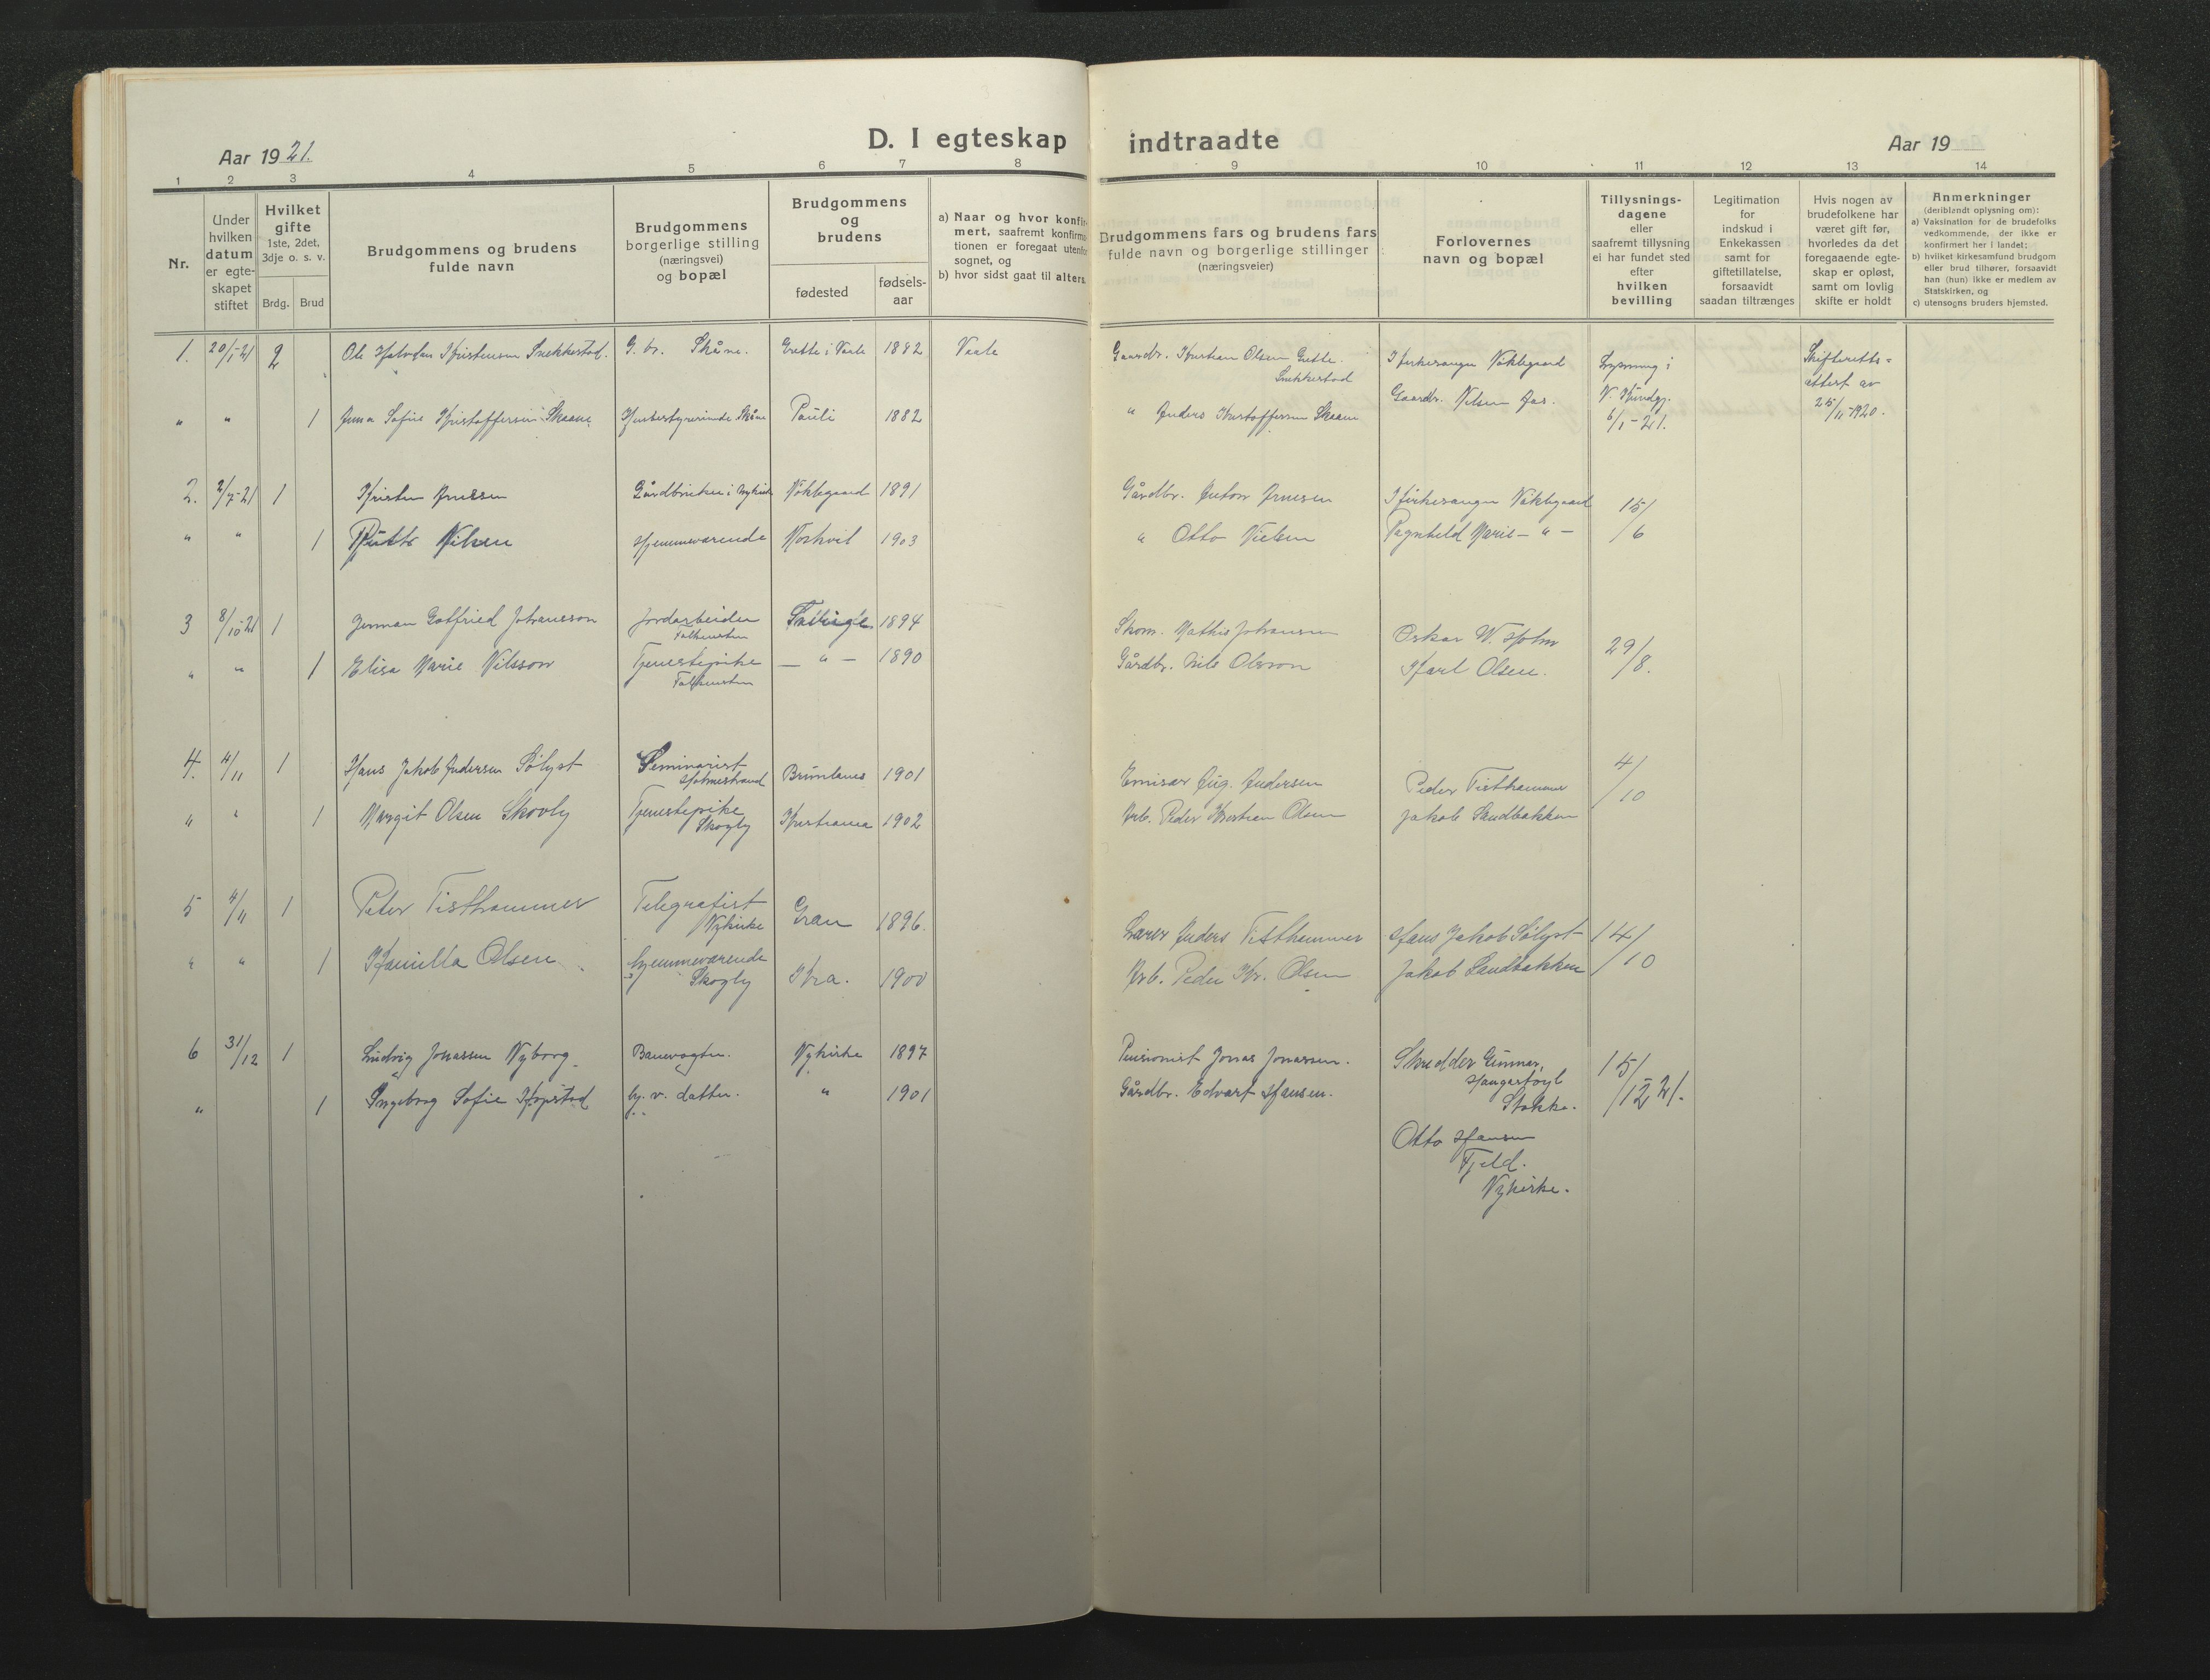 D. I egteskap indtraadte
Aar 1921.
Aar 19
1 2 3 4 5 6 7 8 9 10 11 12 13 14
Nr.
Under
hvilken
datum
er egte-
skapet
stiftet
Hvilket
gifte
1ste, 2det,
3dje o. s. v.
Brdg. Brud
Brudgommens og brudens
fulde navn
Brudgommens
borgerlige stilling
(næringsvei)
og bopæl
Brudgommens
og
brudens
fødested
fødsels-
aar
a) Naar og hvor konfir-
mert, saafremt konfirma-
tionen er foregaat utenfor
sognet, og
b) hvor sidst gaat til alters.
Brudgommens fars og brudens fars
fulde navn og borgerlige stillinger
(næringsveier)
Forlovernes
navn og bopæl
Tillysnings-
dagene
eller
saafremt tillysning
ei har fundet sted
efter
hvilken
bevilling
Legitimation
for
indskud i
Enkekassen
samt for
giftetillatelse,
forsaavidt
saadan tiltrænges
Hvis nogen av
brudefolkene har
været gift før,
hvorledes da det
foregaaende egte-
skap er opløst,
samt om lovlig
skifte er holdt
Anmerkninger
(deriblandt oplysning om):
a) Vaksination for de brudefolks
vedkommende, der ikke er
konfirmert her i landet;
b) hvilket kirkesamfund brudgom
eller brud tilhører, forsaavidt
han (hun) ikke er medlem av
Statskirken, og
c) utensogns bruders hjemsted.
1. 20/1-21 2 Ole Halvdan Kristensen Snekkestad. G. br. Skåne. Grette i Vaale 1882 Vaale Gaardbr. Kristian Olsen Grette Kirkesanger Nøklegaard Lysning i Skifteretts-
Snekkestad Gaardbr. Nilsen Aas. N. Kundgj. attest av
" " 1 Anna Sofie Kristoffersen Skaane Husbestyrerinde Skåne Pauli 1882 " Anders Kristoffersen Skaane 6/1-21. 25/11-1920.
2. 2/7-21 1 Kristen Arnesen Gårdbruker i Nykirke Nøklegaard 1891 Gårdbr. Anton Arnesen Kirkesanger Nøklegaard 15/6
" " 1 Rutt Nilsen Hjemmeværende Norkvil 1903 " Otto Nielsen Ragnhild Marie - " -
3 8/10-21 1 German Gotfried Johansson Jordarbeider 1894 Skom. Mathis Johansen Oskar W. Holm 29/8.
Falkensten
" " 1 Elisa Marie Nilsson Tjenestepike - " - 1890 Gårdbr. Nils Olsson Karl Olsen.
Falkensten
4. 4/11 1 Hans Jakob Andersen Sølyst Seminarist Brunlanes 1901 Emisær Aug. Andersen Peder Tisthammer 4/10
Holmestrand
" " 1 Margit Olsen Skovly Tjenestepike Kristiania 1902 Arb. Peder Kristian Olsen Jakob Sandbakken
Skogly
5 4/11 1 Peter Tisthammer Telegrafist Gran 1896. Lærer Anders Tisthammer Hans Jakob Sølyst 14/10
Nykirke
" " 1 Kamilla Olsen Hjemmeværende Kra. 1900 Arb. Peder Kr. Olsen Jakob Sandbakken
Skogly
6 31/12 1 Ludvig Jonassen Nyborg. Banevogter. Nykirke 1897 Pensionist Jonas Jonassen. Skredder Gunnar, 15/12 21.
Stokke.
" 1 Ingeborg Sofie Kopstad hj. v. datter. " 1901 Gårdbr. Edvart Hansen.
Otto Hansen
Fjeld.
Nykirke.